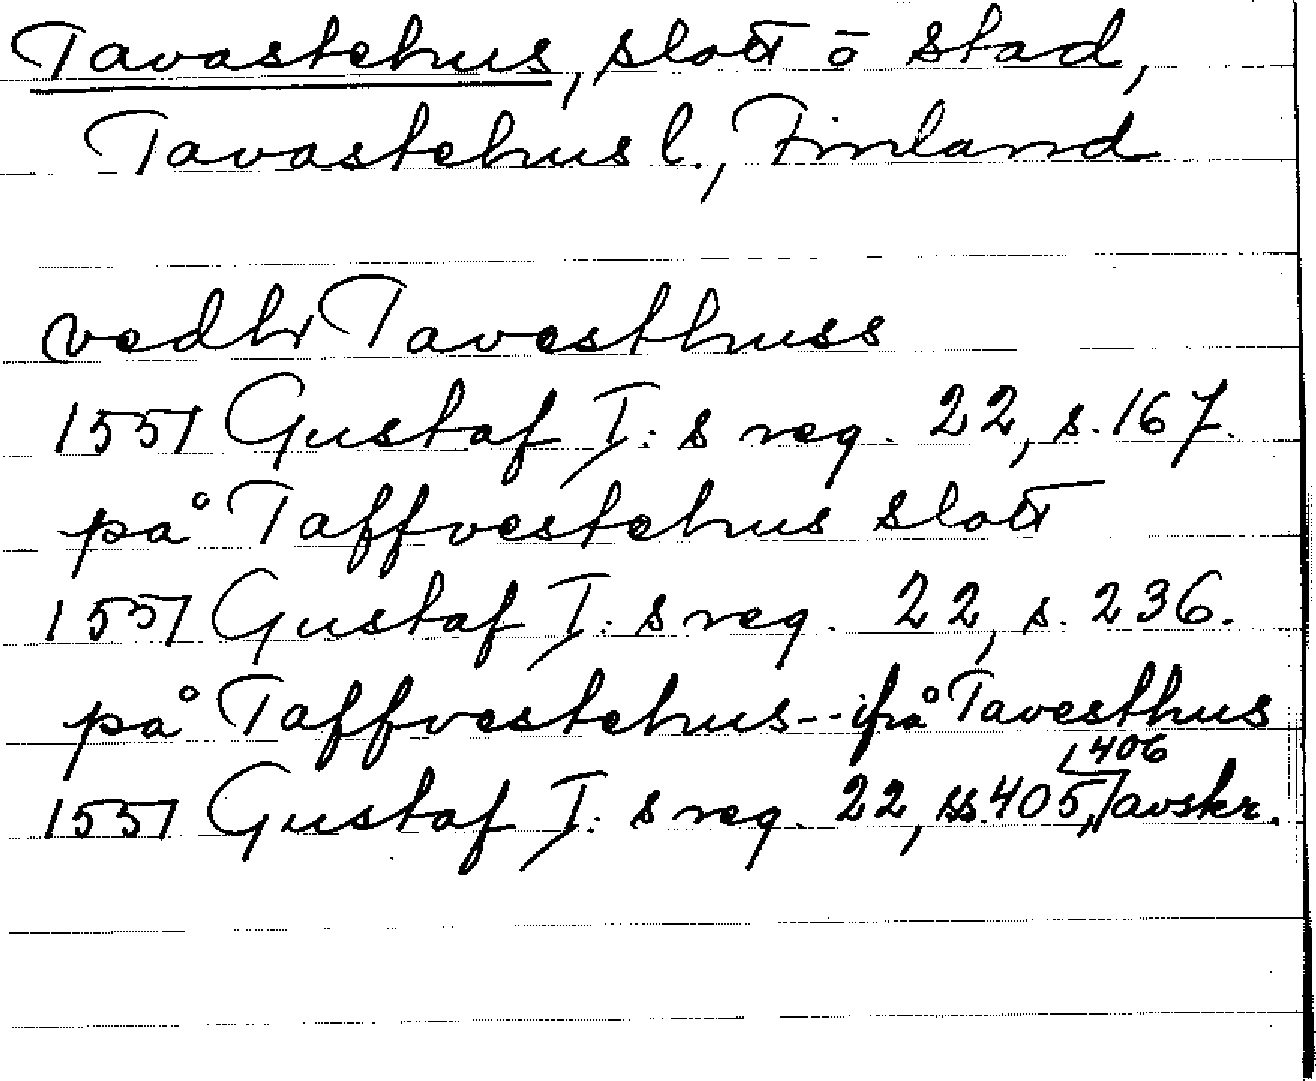 Tavastehus, slott o stad,
Tavastehus l., Finland
vedhr Tavesthuss
1551 Gustaf I:s reg. 22, s. 167.
på Taffvestehus slott
1551 Gustaf I:s reg. 22, s. 236.
på Taffvestehus -- ifrå Tavesthus
1551 Gustaf I:s reg. 22, ss. 405, 406 avskr.